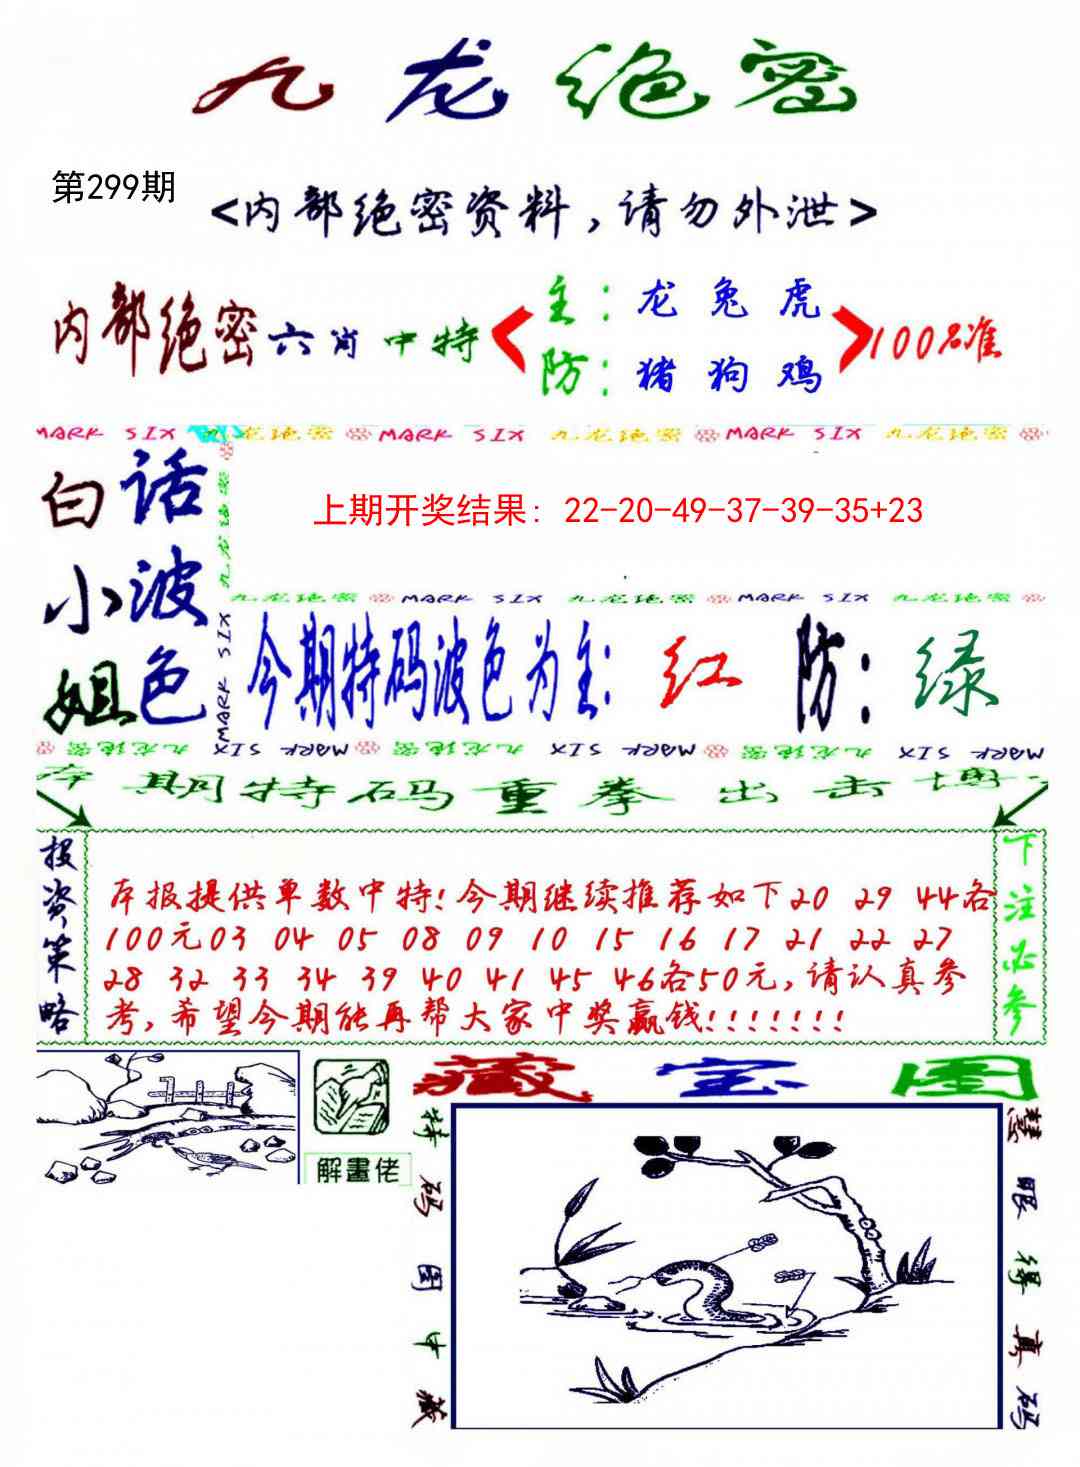 九龙绝密
第299期
<内部绝密资料,请勿外泄>
内部绝密六肖中特
主:龙兔虎
防:猪狗鸡
100%准
MARK SIX 九龙绝密 MARK SIX 九龙绝密 MARK SIX 九龙绝密
白话小波姐色
九龙绝密 MARK SIX
上期开奖结果: 22-20-49-37-39-35+23
九龙绝密 MARK SIX 九龙绝密 MARK SIX 九龙绝密
今期特码波色为主:红 防:绿
九龙绝密 MARK SIX 九龙绝密 MARK SIX 九龙绝密 MARK SIX
本期特码重拳出击博
投资策略
本报提供单数中特!今期继续推荐如下20 29 44各
100元03 04 05 08 09 10 15 16 17 21 22 27
28 32 33 34 39 40 41 45 46各50元,请认真参
考,希望今期能再帮大家中奖赢钱!!!!!!!
下注必参
解畫佬
藏宝图
特码图中藏
慧眼得真码